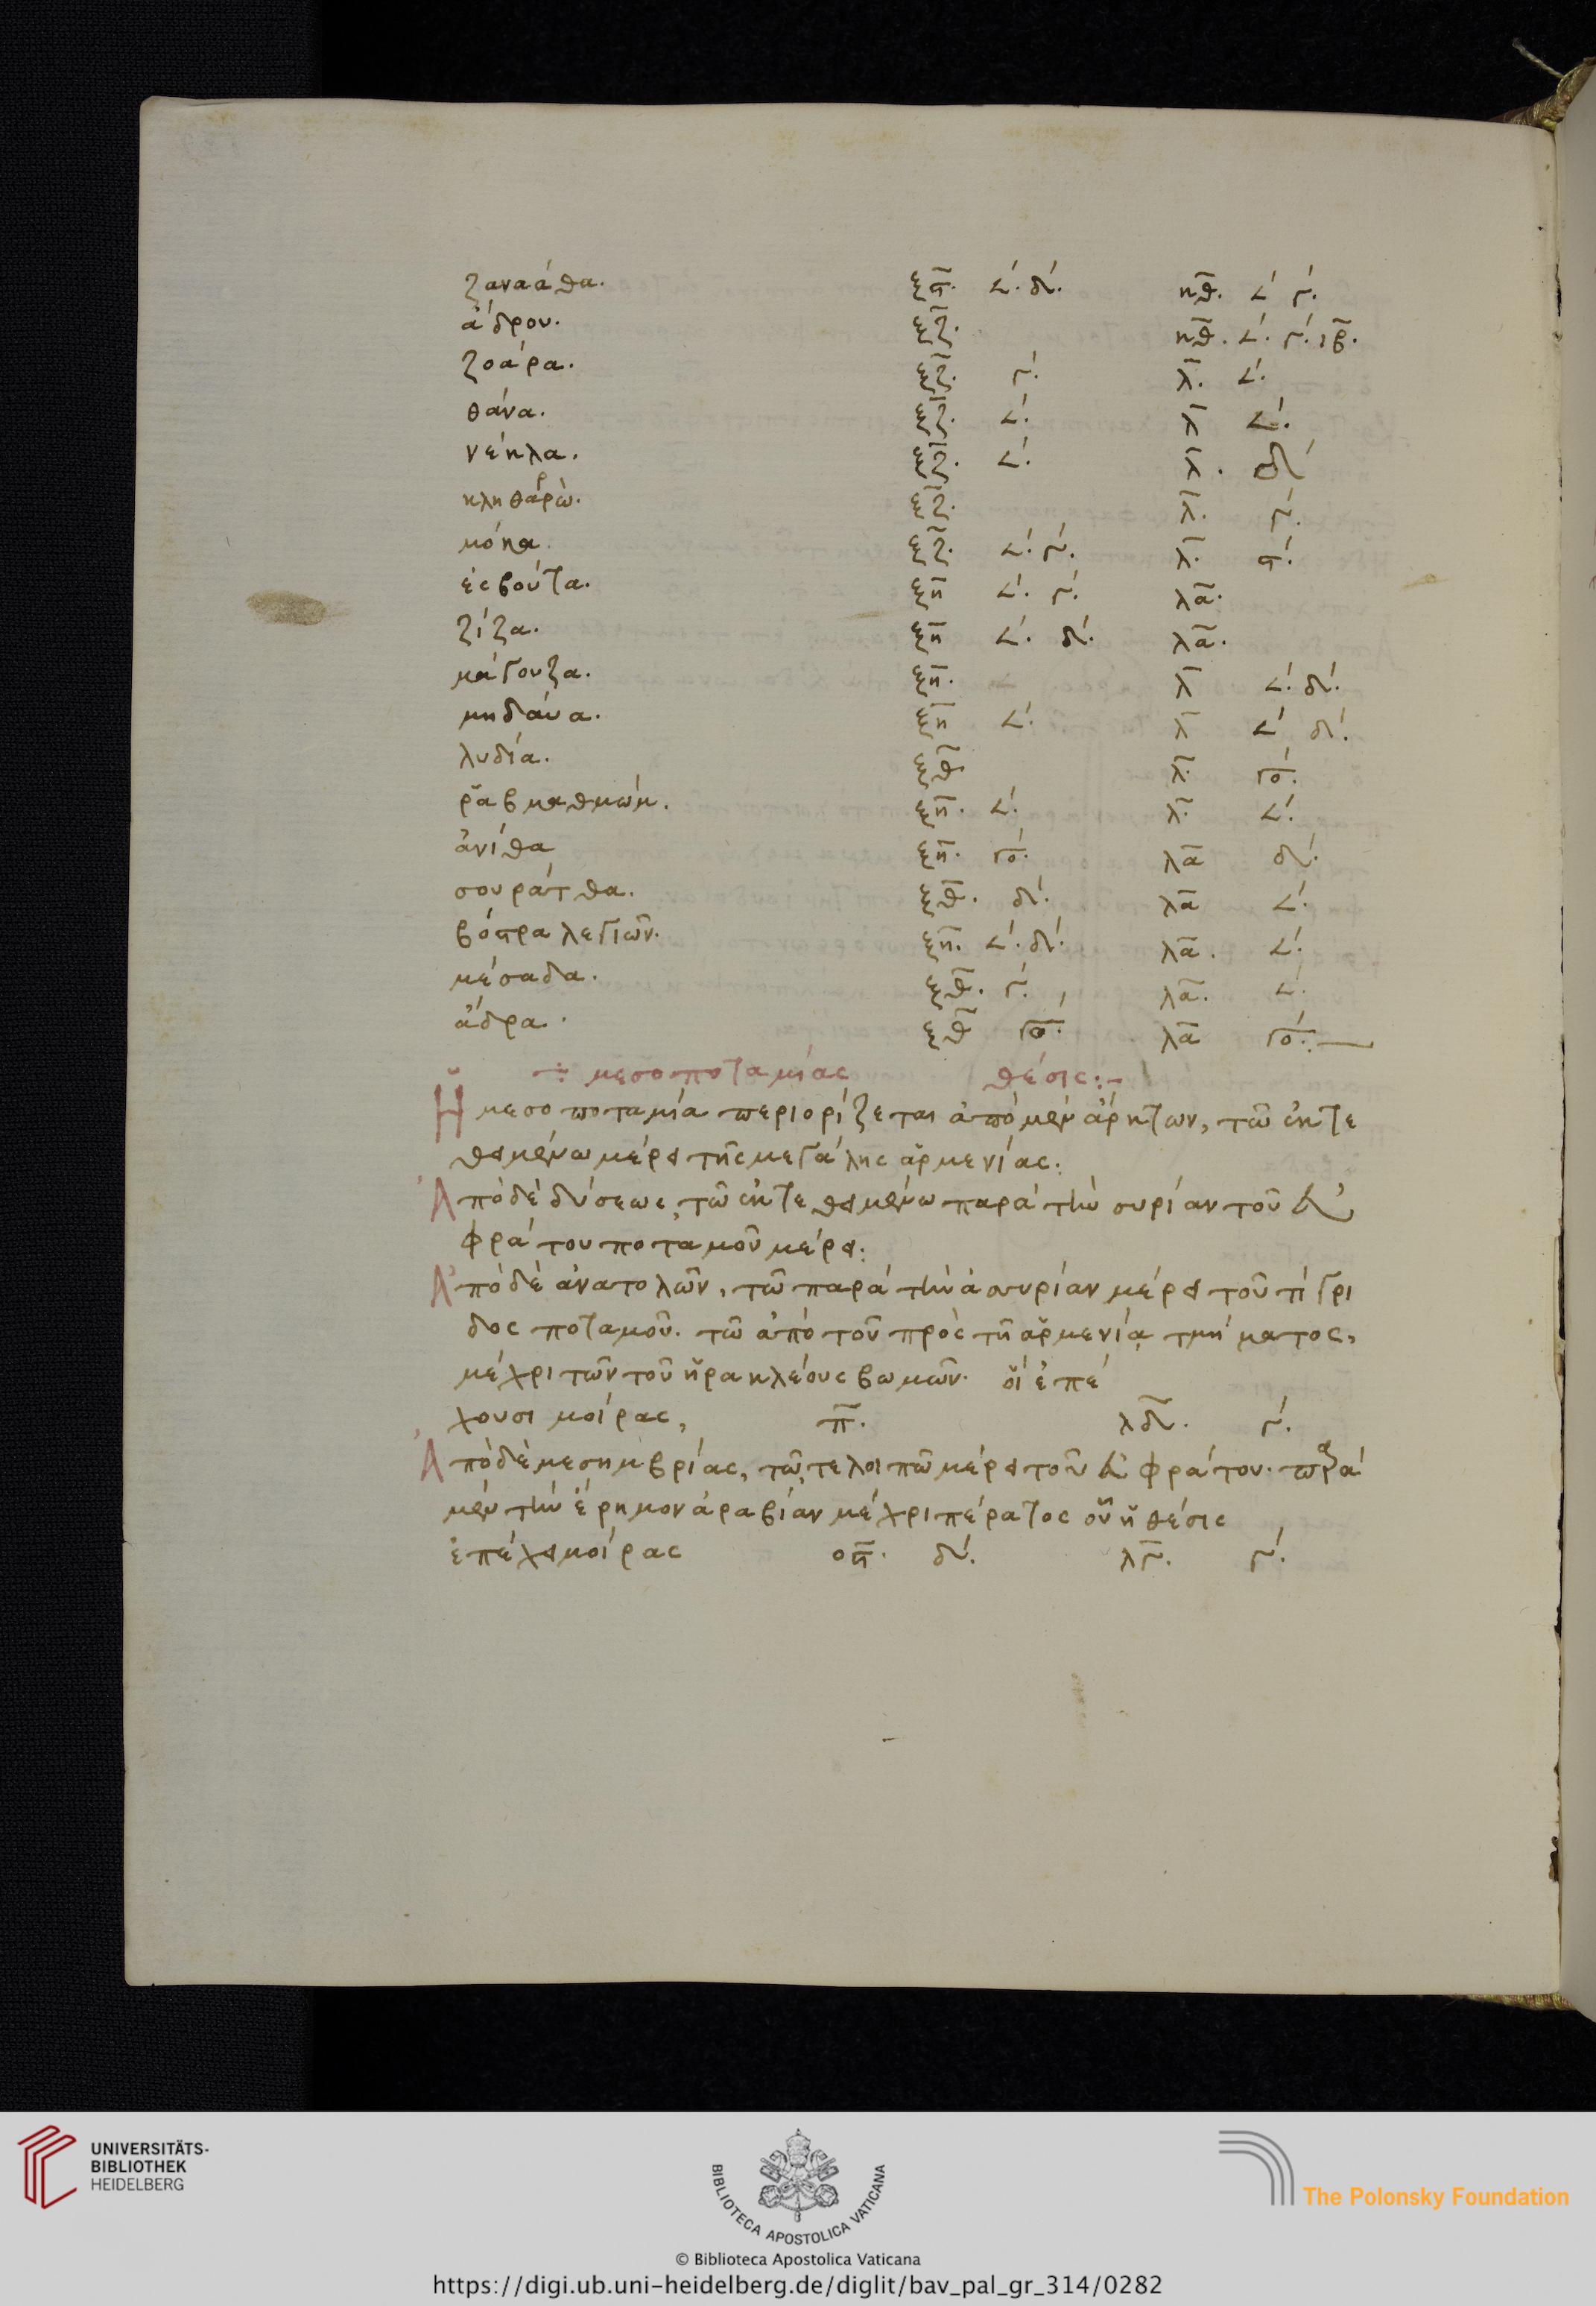 ζαναάθα. ξϛ. 𐅵. δ'. κθ. 𐅵 γ'.
ἄδρου. ξζ. κθ. 𐅵. γ'. ιβ.
ζοάρα. ξζ. γ'. λ. 𐅵.
θάνα. ξζ. 𐅵. λ 𐅵.
νέκλα. ξζ. 𐅵. λ. δ'
κληθαρρὼ. ξζ. λ. γ'.
μόκα. ξζ. 𐅵. γ'. λ. ϛ'.
ἐσβούτα. ξη 𐅵. γ'. λα.
ζίζα. ξη 𐅵. δ'. λα.
μάγουζα. ξη. λ 𐅵. δ'.
μηδάυα. ξη 𐅵. λ 𐅵 δ'.
λυδία. ξθ λ. γο'.
ῥαβμαθμώμ. ξη. 𐅵. λ. 𐅵.
ἀνίθα ξη. γο'. λα δ'.
σουράτθα. ξθ. δ'. λα 𐅵.
βόστρα λεγιῶν. ξη. 𐅵. δ'. λα. 𐅵.
μέσαδα. ξθ. γ'. λα. 𐅵.
ἄδρα. ξθ γο'. λα γο'.
μεσοποταμίας θέσις:-
Ἡ μεσοποταμία περιορίζεται ἀπὸ μὲν ἄρκτων, τῶ ἐκτε
θειμένω μέρει τῆς μεγάλης ἀρμενίας:
Ἀπὸ δὲ δύσεως, τῶ ἐκτεθειμένω παρὰ τὴν συρίαν τοῦ εὐ
φράτου ποταμοῦ μέρει:
Ἀπὸ δὲ ἀνατολῶν, τῶ παρὰ τὴν ἀσυρίαν μέρει τοῦ τίγρι
δος ποταμοῦ. τῶ ἀπὸ τοῦ πρὸς τῆ ἀρμενία τμήματος,
μέχρι τῶν τοῦ ἡρακλέους βωμῶν. οἳ ἐπέ
χουσι μοίρας, π. λδ. γ'.
Ἀπὸ δὲ μεσημβρίας, τῶ τε λοιπῶ μέρει τοῦ εὐφράτου. παρὰ
μὲν τὴν ἔρημον ἀραβίαν μέχρι πέρατος οὗ ἡ θέσις
ἐπέχει μοίρας οϛ. δ'. λγ. γ'.
UNIVERSITÄTS-
BIBLIOTHEK
HEIDELBERG
BIBLIOTECA APOSTOLICA VATICANA
The Polonsky Foundation
© Biblioteca Apostolica Vaticana
https://digi.ub.uni-heidelberg.de/diglit/bav_pal_gr_314/0282